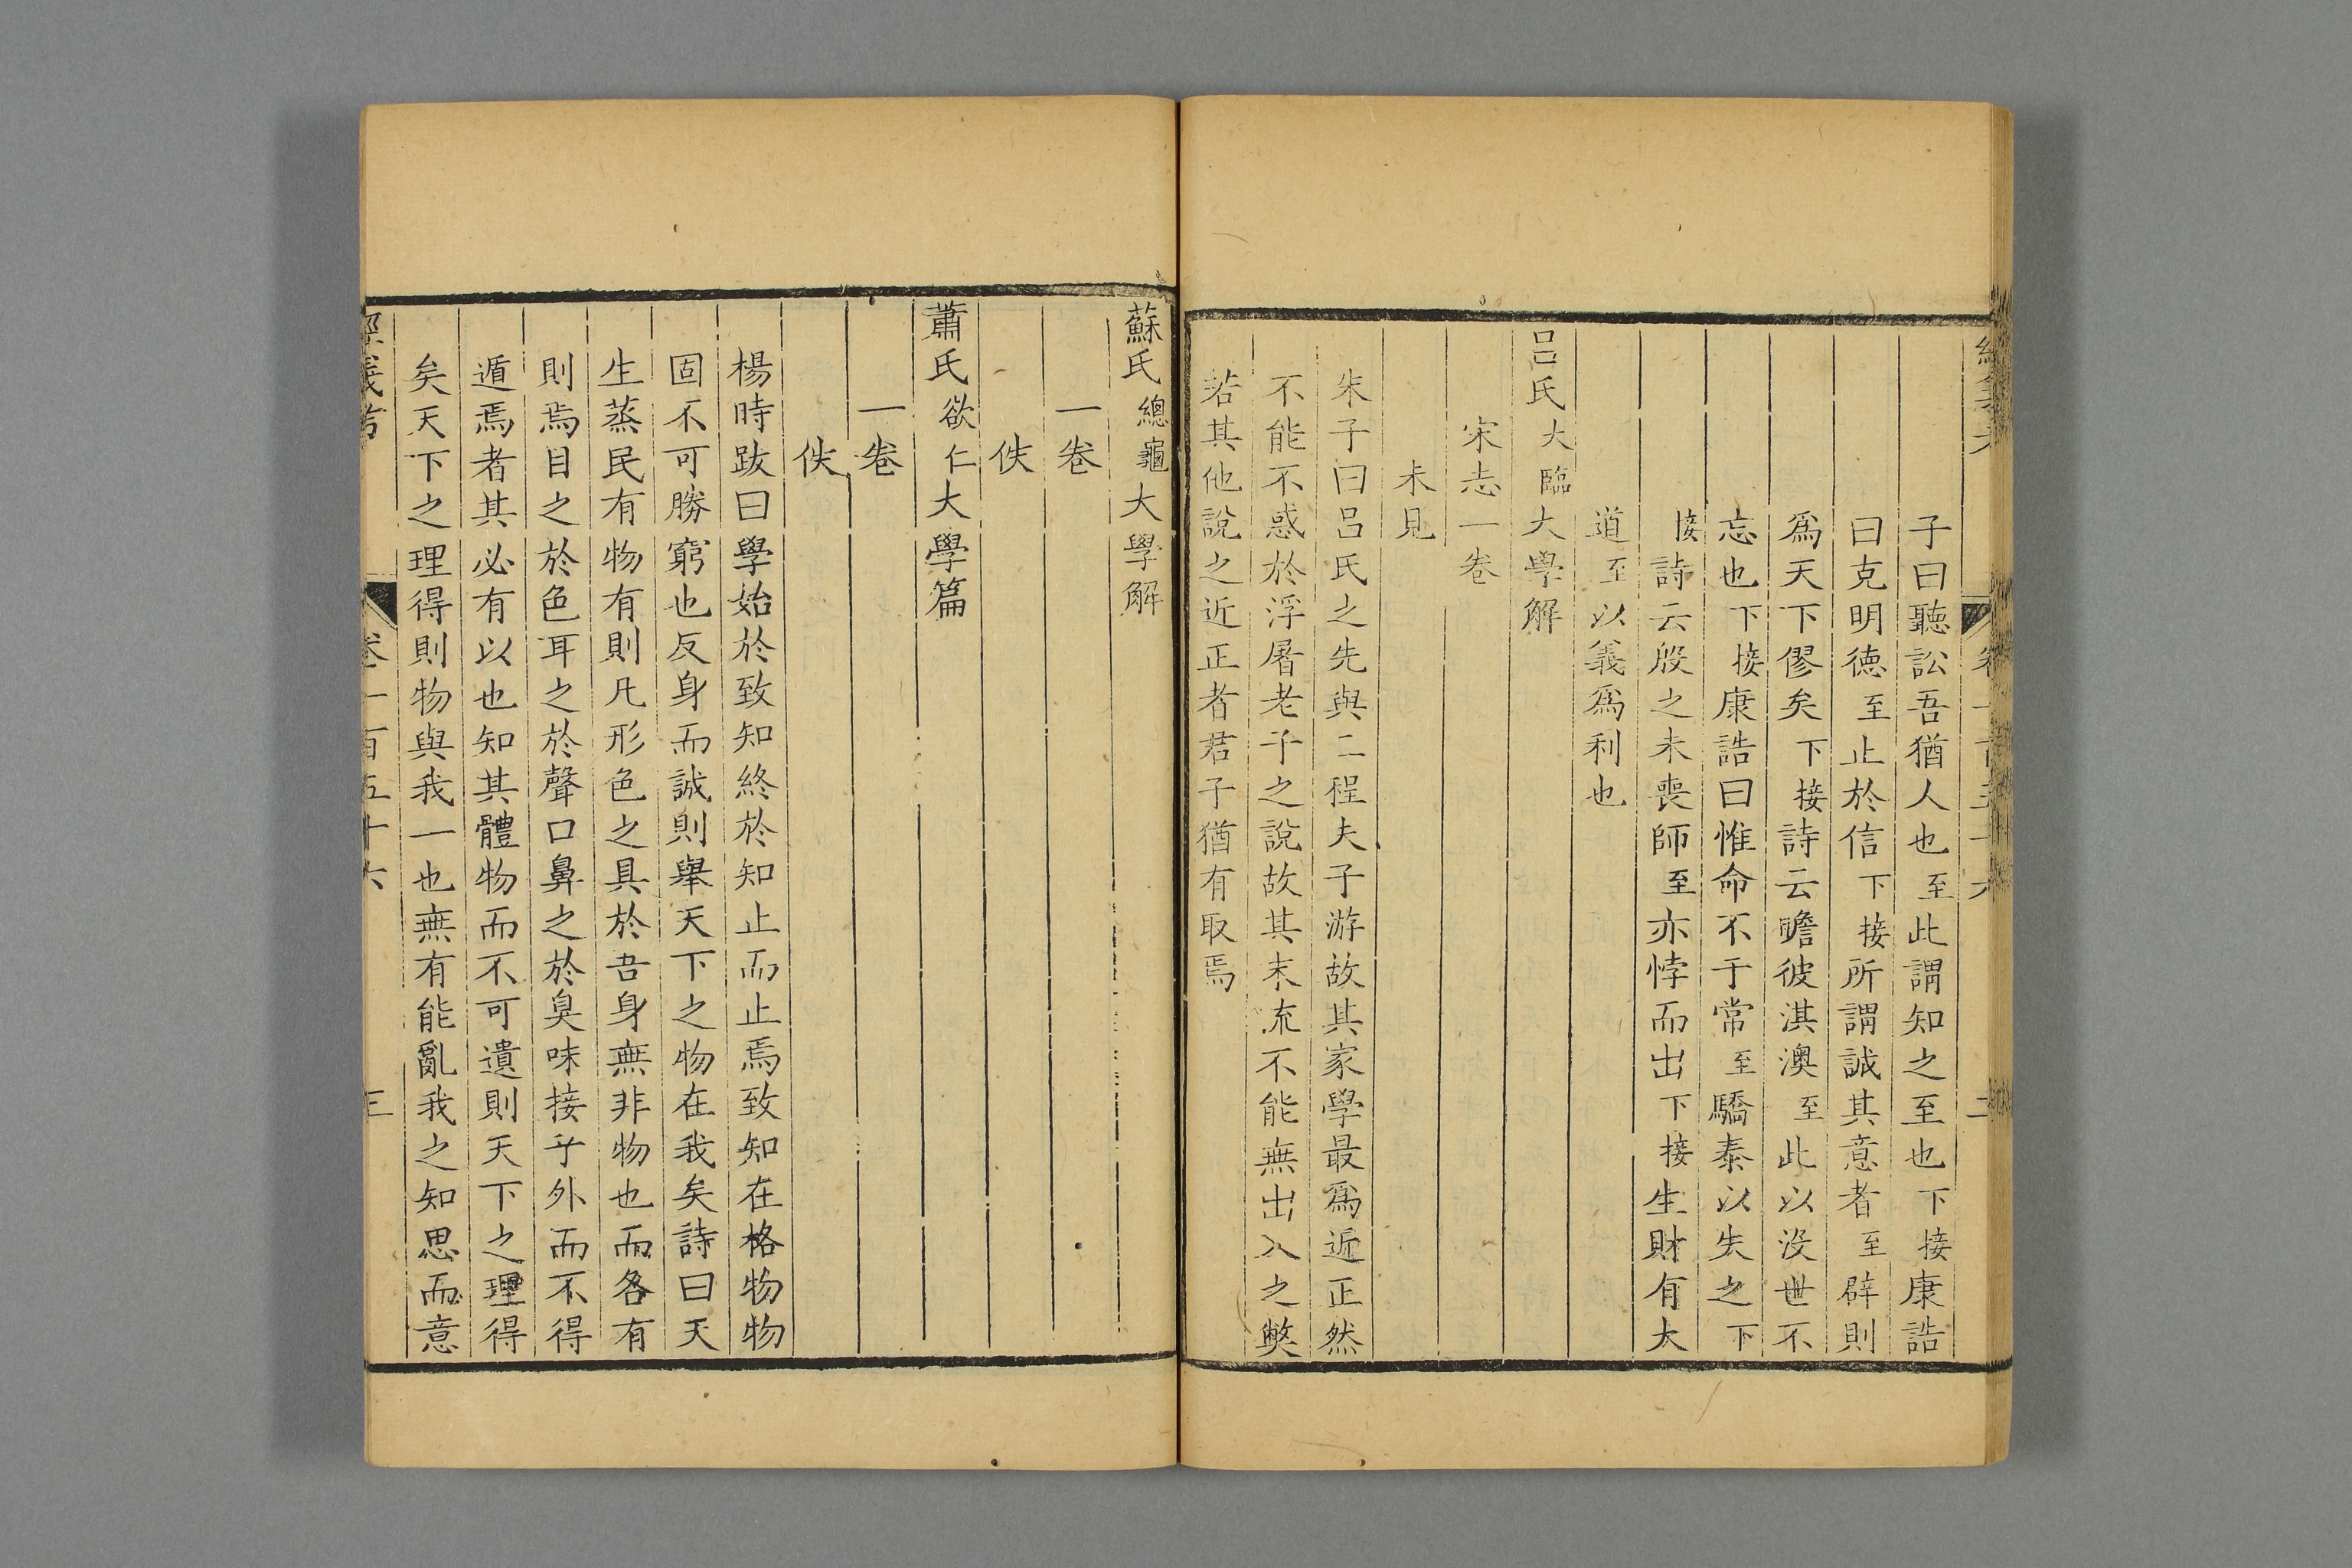 子曰聽訟吾猶人也至此謂知之至也下接康誥
曰克明德至止於信下接所謂誠其意者至辟則
爲天下僇矣下接詩云瞻彼淇澳至此以沒世不
忘也下接康誥曰惟命不于常至驕泰以失之下
接詩云殷之未喪師至亦悖而出下接生財有大
道至以義爲利也
呂氏大臨大學解
宋志一卷
未見
朱子曰呂氏之先與二程夫子游故其家學最爲近正然
不能不惑於浮屠老子之說故其末流不能無出入之弊
若其他說之近正者君子猶有取焉
蘇氏總龜大學解
一卷
佚
蕭氏欲仁大學篇
一卷
佚
楊時跋曰學始於致知終於知止而止焉致知在格物物
固不可勝窮也反身而誠則舉天下之物在我矣詩曰天
生蒸民有物有則凡形色之具於吾身無非物也而各有
則焉目之於色耳之於聲口鼻之於臭味接乎外而不得
遁焉者其必有以也知其體物而不可遺則天下之理得
矣天下之理得則物與我一也無有能亂我之知思而意
經義考 卷一百五十六 三